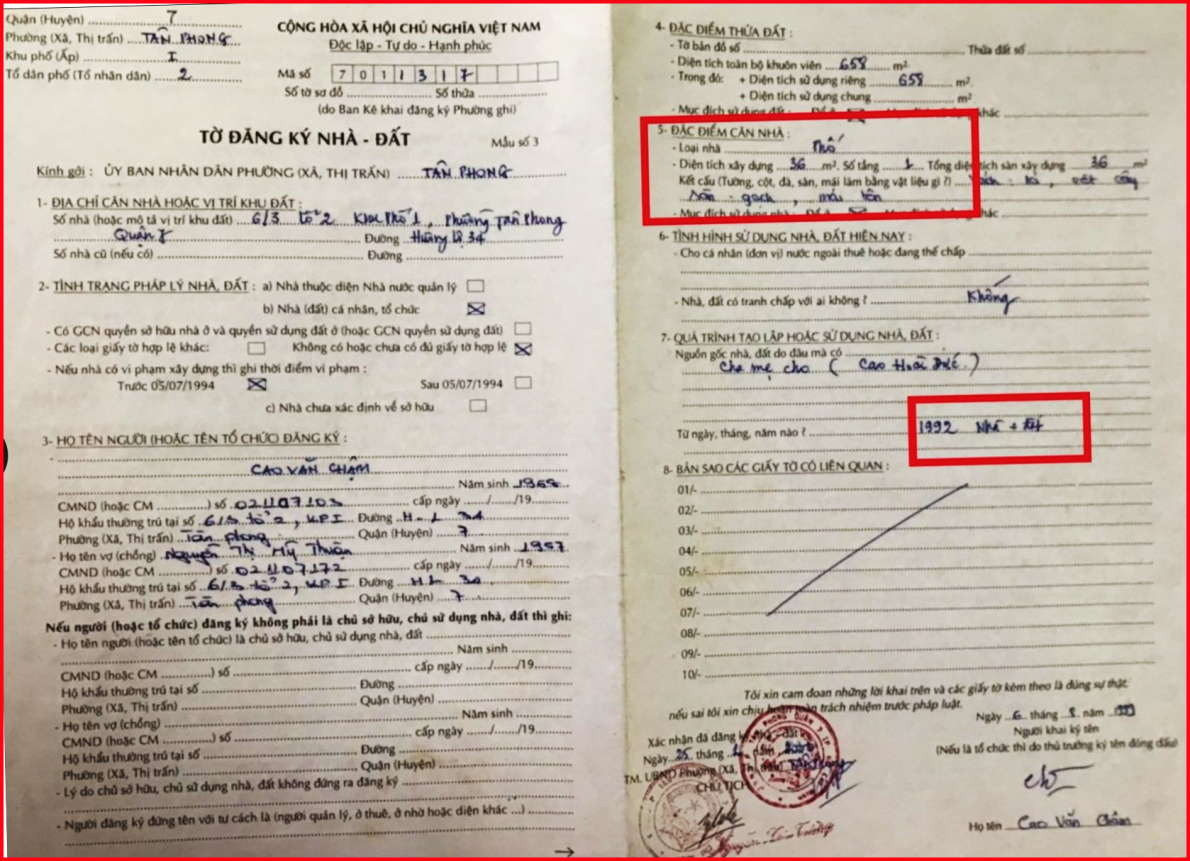 Quận (Huyện) ..... 7
Phường (Xã, Thị trấn) TÂN PHONG
Khu phố (Ấp) ..... I
Tổ dân phố (Tổ nhân dân) ..... 2
CỘNG HÒA XÃ HỘI CHỦ NGHĨA VIỆT NAM
Độc lập - Tự do - Hạnh phúc
Mã số 7 0 1 1 3 1 7
Số tờ sơ đồ ..... Số thửa .....
(do Ban Kê khai đăng ký Phường ghi)
TỜ ĐĂNG KÝ NHÀ - ĐẤT Mẫu số 3
Kính gởi : ỦY BAN NHÂN DÂN PHƯỜNG (XÃ, THỊ TRẤN) ..... TÂN PHONG
1- ĐỊA CHỈ CĂN NHÀ HOẶC VỊ TRÍ KHU ĐẤT :
Số nhà (hoặc mô tả vị trí khu đất) 6/3 tổ 2 Khu Phố 1, Phường Tân Phong
Quận 7 ..... Đường Hương Lộ 34
Số nhà cũ (nếu có) ..... Đường .....
2- TÌNH TRẠNG PHÁP LÝ NHÀ, ĐẤT : a) Nhà thuộc diện Nhà nước quản lý ☐
b) Nhà (đất) cá nhân, tổ chức ☒
- Có GCN quyền sở hữu nhà ở và quyền sử dụng đất ở (hoặc GCN quyền sử dụng đất) ☐
- Các loại giấy tờ hợp lệ khác: ☐ Không có hoặc chưa có đủ giấy tờ hợp lệ ☒
- Nếu nhà có vi phạm xây dựng thì ghi thời điểm vi phạm :
Trước 05/07/1994 ☒ Sau 05/07/1994 ☐
c) Nhà chưa xác định về sở hữu ☐
3- HỌ TÊN NGƯỜI (HOẶC TÊN TỔ CHỨC) ĐĂNG KÝ :
CAO VĂN CHẬM
Năm sinh
CMND (hoặc CM ..........) số 021107103 cấp ngày ...../...../19.....
Hộ khẩu thường trú tại số 6/3 tổ 2, K.P.I Đường H-L 34
Phường (Xã, Thị trấn) Tân phong Quận (Huyện) 7
- Họ tên vợ (chồng) Nguyễn Thị Mỹ Thuận Năm sinh 1957
CMND (hoặc CM ..........) số 021107172 cấp ngày ...../...../19.....
Hộ khẩu thường trú tại số 6/3 tổ 2, K.P.I Đường H L 34
Phường (Xã, Thị trấn) Tân phong Quận (Huyện) 7
Nếu người (hoặc tổ chức) đăng ký không phải là chủ sở hữu, chủ sử dụng nhà, đất thì ghi:
- Họ tên người (hoặc tên tổ chức) là chủ sở hữu, chủ sử dụng nhà, đất .....
Năm sinh .....
CMND (hoặc CM ..........) số ..... cấp ngày ...../...../19.....
Hộ khẩu thường trú tại số ..... Đường .....
Phường (Xã, Thị trấn) ..... Quận (Huyện) .....
- Họ tên vợ (chồng) ..... Năm sinh .....
CMND (hoặc CM ..........) số ..... cấp ngày ...../...../19.....
Hộ khẩu thường trú tại số ..... Đường .....
Phường (Xã, Thị trấn) ..... Quận (Huyện) .....
- Lý do chủ sở hữu, chủ sử dụng nhà, đất không đứng ra đăng ký .....
- Người đăng ký đứng tên với tư cách là (người quản lý, ở thuê, ở nhờ hoặc diện khác ...) .....
4- ĐẶC ĐIỂM THỬA ĐẤT :
- Tờ bản đồ số ..... Thửa đất số .....
- Diện tích toàn bộ khuôn viên 658 m².
- Trong đó: + Diện tích sử dụng riêng 658 m².
+ Diện tích sử dụng chung ..... m².
- Mục đích sử dụng đất : Để ở ☒ Mục đích sử dụng khác
5- ĐẶC ĐIỂM CĂN NHÀ :
- Loại nhà ..... Phố
- Diện tích xây dựng 36 m². Số tầng 1 Tổng diện tích sàn xây dựng 36 m²
Kết cấu (Tường, cột, đà, sàn, mái làm bằng vật liệu gì ?)
gạch, mái tôn
- Mục đích sử dụng nhà : Để ở ☒ Mục đích sử dụng khác
6- TÌNH HÌNH SỬ DỤNG NHÀ, ĐẤT HIỆN NAY :
- Cho cá nhân (đơn vị) nước ngoài thuê hoặc đang thế chấp .....
- Nhà, đất có tranh chấp với ai không ? Không
7- QUÁ TRÌNH TẠO LẬP HOẶC SỬ DỤNG NHÀ, ĐẤT :
Nguồn gốc nhà, đất do đâu mà có .....
Cha mẹ cho ( Cao Hoài Đức )
Từ ngày, tháng, năm nào ? 1992 Nhà + đất
8- BẢN SAO CÁC GIẤY TỜ CÓ LIÊN QUAN :
01/-
02/-
03/-
04/-
05/-
06/-
07/-
08/-
09/-
10/-
Tôi xin cam đoan những lời khai trên và các giấy tờ kèm theo là đúng sự thật,
nếu sai tôi xin chịu hoàn toàn trách nhiệm trước pháp luật.
Ngày 6 tháng 8 năm 1999
Người khai ký tên
(Nếu là tổ chức thì do thủ trưởng ký tên đóng dấu)
Xác nhận đã đăng ký nhà - đất
Ngày 25 tháng năm
TM. UBND Phường (Xã, Thị trấn)
CHỦ TỊCH
Họ tên Cao Văn Chậm